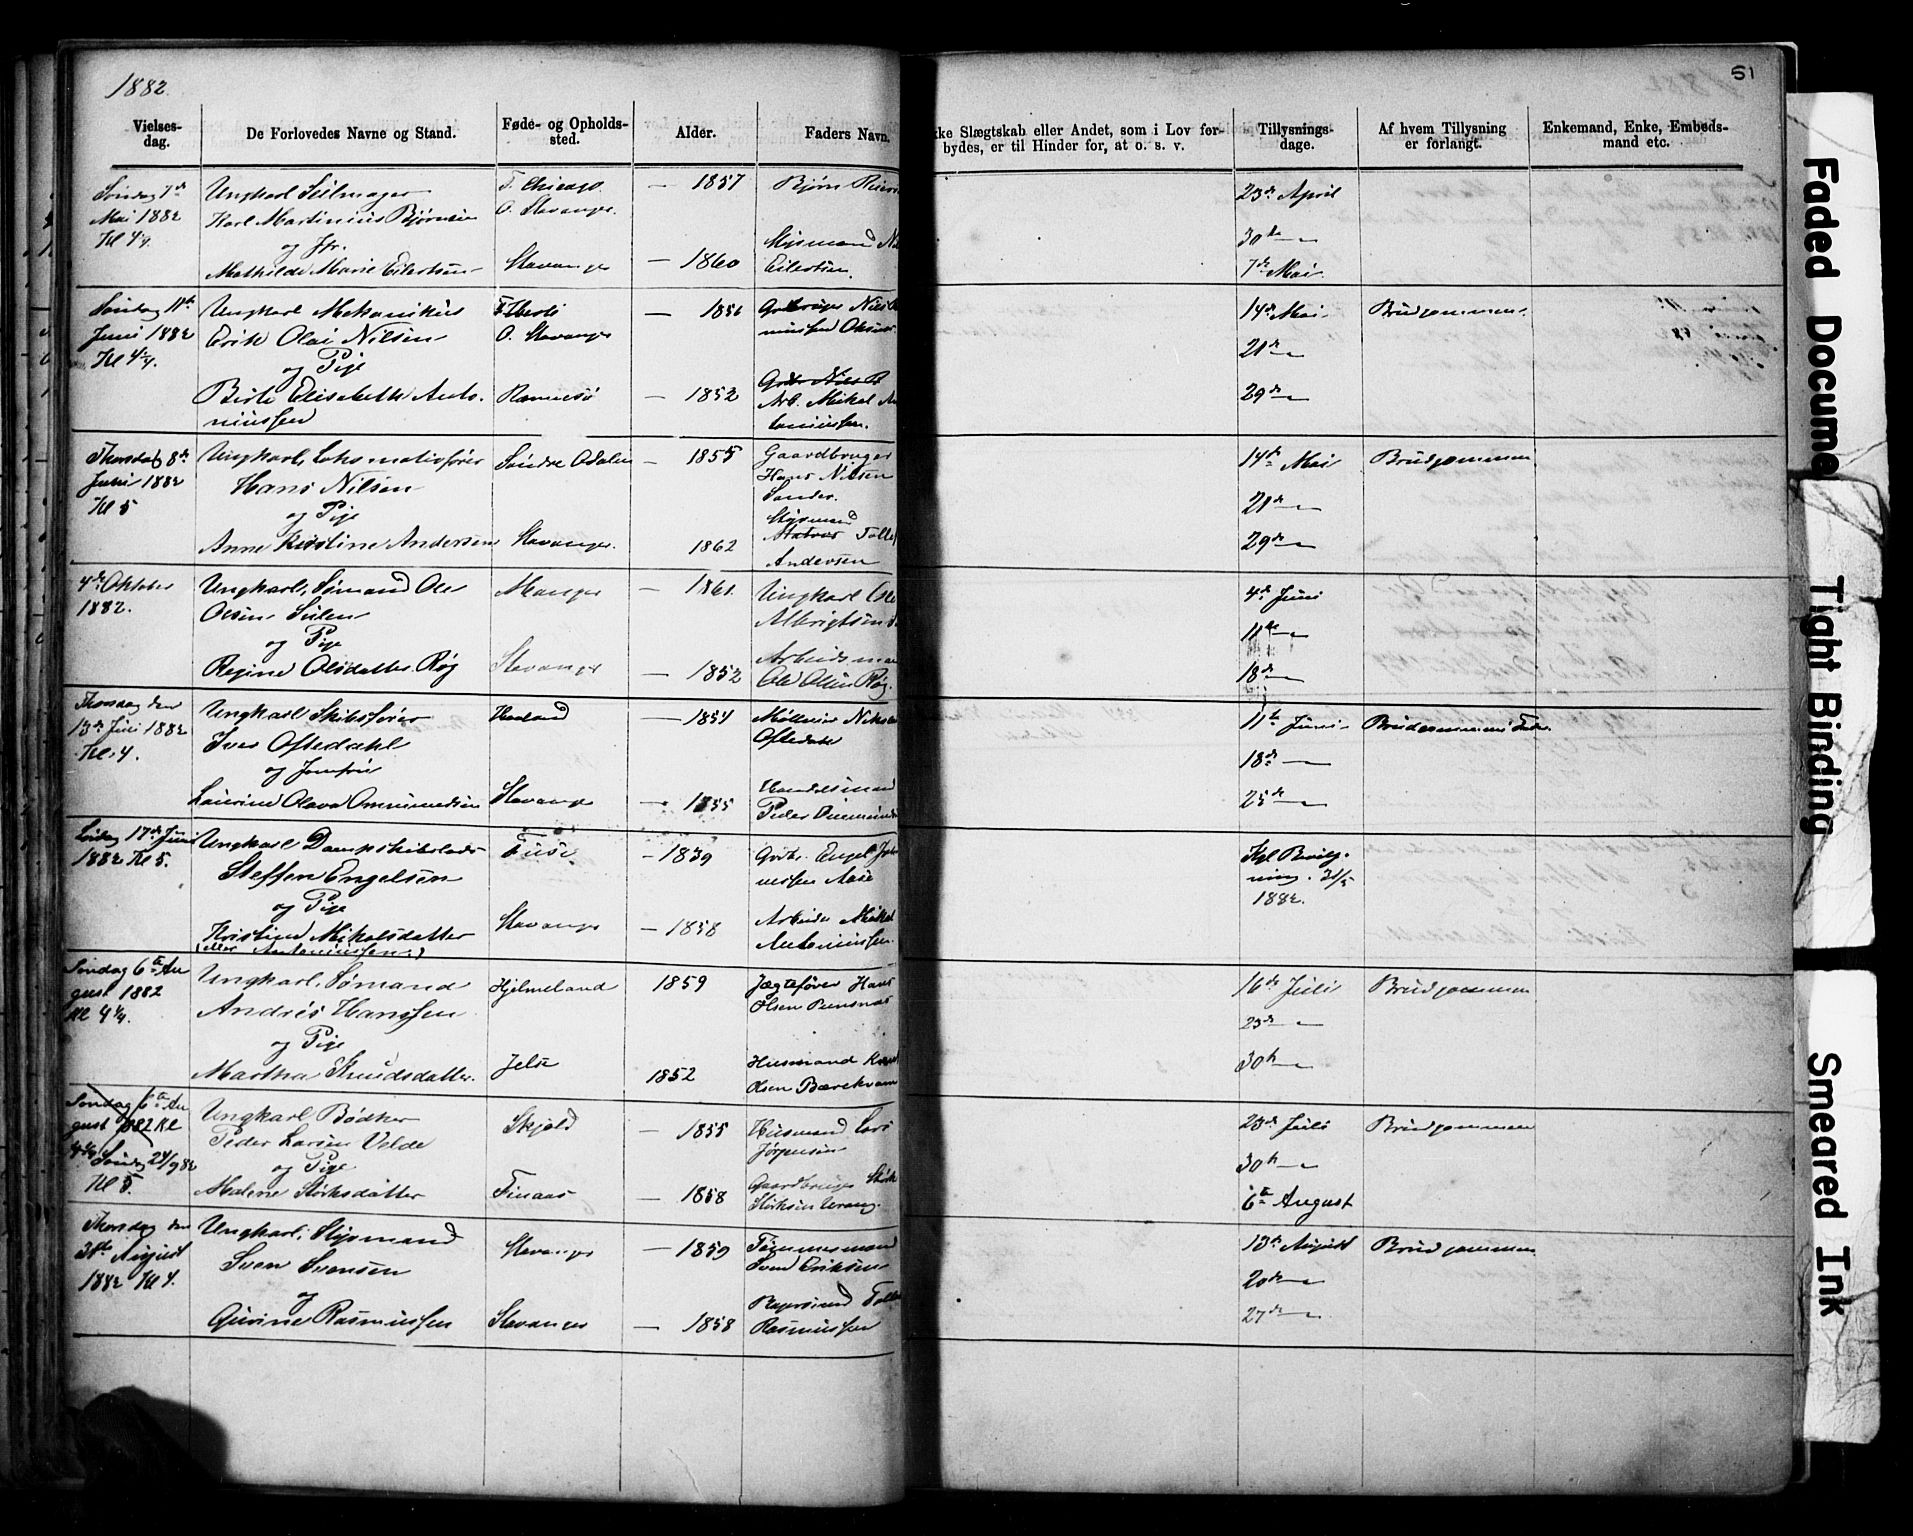 1882
51
Vielses-
dag.
De Forlovedes Navne og Stand.
Føde- og Opholds-
sted.
Alder.
Faders Navn.
ke Slægtskab eller Andet, som i Lov for-
bydes, er til Hinder for, at o. s. v.
Tillysnings-
dage.
Af hvem Tillysning
er forlangt.
Enkemand, Enke, Embeds-
mand etc.
Søndag 7de
Mai 1882
Kl 4¼
Ungkarl Seilmager
Karl Martinius Bjørnsen
og Jfr.
Mathilde Marie Eilertsen
F. Chicago
O. Stavanger.
Stavanger
— 1857
— 1860
Bjørn
Styrmand
Eilertsen.
23de April
30te —
7de Mai
Søndag 11te
Juni 1882
Kl 4¼
Ungkarl Mekanikus
Erik Olai Nilsen
og Pige
Birte Elisabeth Anto-
niussen
O. Stavanger
Rennesø
— 1856
— 1852
Arb. Mikal An
toniussen.
14de Mai
21de —
29de —
Brudgommen
Thorsdag 8de
Juni 1882
Kl 5
Ungkarl, Lokomotivfører
Hans Nilsen
og Pige
Anne Kirstine Andersen
Søndre Odalen
Stavanger.
— 1855
1862
Gaardbruger
Hans Nilsen
Sander.
Styrmand
Matros
Andersen
14de Mai
21de —
29de —
Brudgommen
4de Oktober
1882.
Ungkarl, Sømand Ole
Olsen
og Pige
Regine Olsdatter Røg
Manger
Stavanger
— 1861
— 1852
Ungkarl Ole
Albrigtsen
Arbeidsman
Ole Olsen Røg.
4de Juni
11te —
18de —
Thorsdag den
13de Juli 1882
Kl. 4.
Ungkarl Skibsfører
Iver Oftedahl
og Jomfru
Laurine Olava Ommundsen
Høiland
Stavanger
— 1854
— 1855
Oftedahl
Handelsmand
Peder Ommunds
11te Juni
18de —
25de —
Brudgommens Fader
Lørdag 17de Juni
1882 Kl 5.
Ungkarl Dampskibslods
Steffen Engelsen
og Pige
Kristine Mikalsdatter
(eller Antoniussen)
Fuse
Stavanger
— 1839
— 1858
Grdbr. Engel
Arbeider Mikal
Antoniussen.
Kgl Bevilg-
ning. 31/5
1882.
Søndag 6te Au
gust 1882
Kl 4¼
Ungkarl, Sømand
Andreas Hanssen
og Pige
Martha Knudsdatter.
Hjelmeland
Jelse
1859
1852
Jægtefører Hans
Olsen
Husmand Knud
Olsen Bærekvam
16de Juli
23de —
30te —
Brudgommen
Søndag 6te Au
gust 1882 Kl
4¼ Søndag 24/9 82
Kl 5.
Ungkarl Bødker
Peder Larsen Velde
og Pige
Malene Størksdatter
Skjold
Finaas
— 1855
— 1858
Husmand Lars
Jørgensen
Gaardbruger Størk
Størksen
23de Juli
30te —
6te August
Brudgommen
Thorsdag den
31te August
1882 Kl 4.
Ungkarl, Styrmand
Sven Svensen
og
Gurine Rasmussen
Stavanger
Stavanger
— 1859
— 1858
Tømmermand
Svend Eriksen
Rasmussen
13de August
20de —
27de —
Brudgommen
Faded Documen
Tight Binding
Smeared Ink